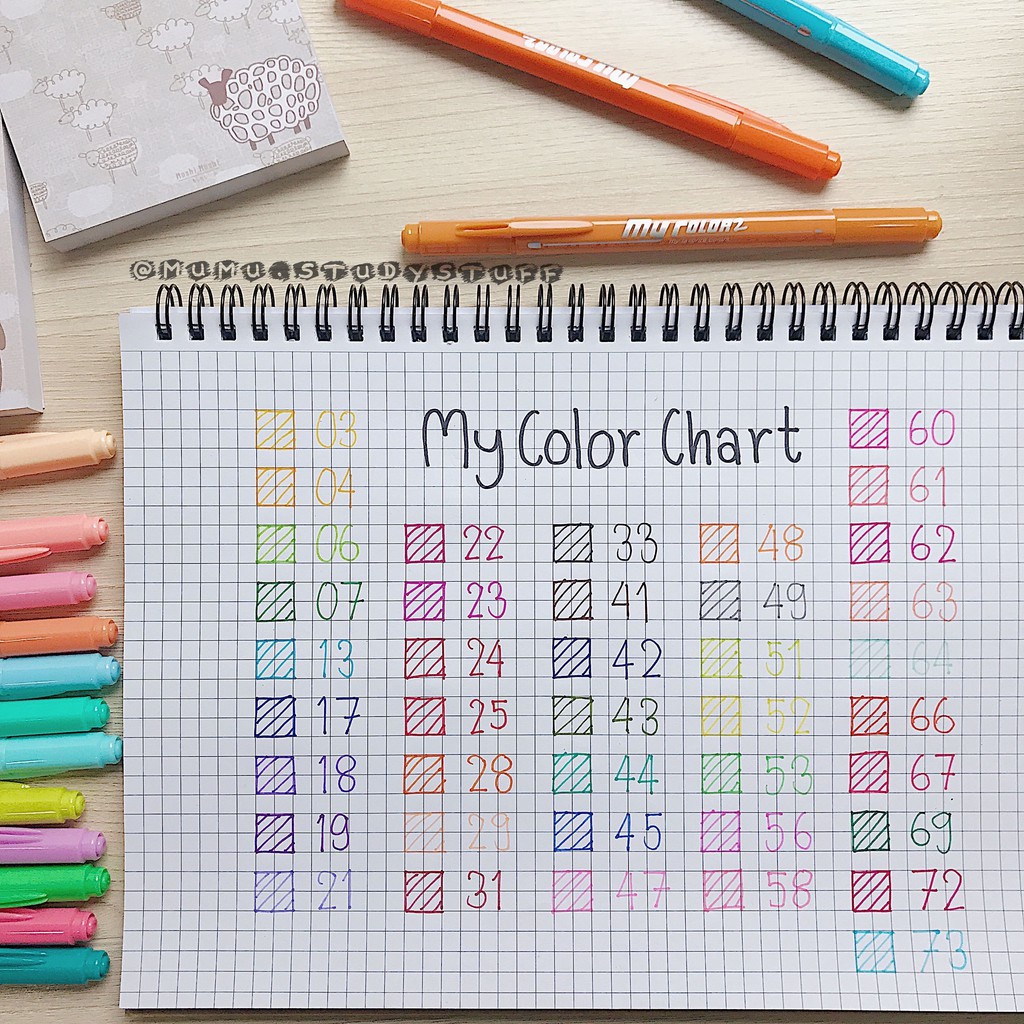 Moshi Moshi
MyColor2
MyColor2
@MuMu.studystuff
My Color Chart
03
04
06
07
13
17
18
19
21
22
23
24
25
28
29
31
33
41
42
43
44
45
47
48
49
51
52
53
56
58
60
61
62
63
64
66
67
69
72
73